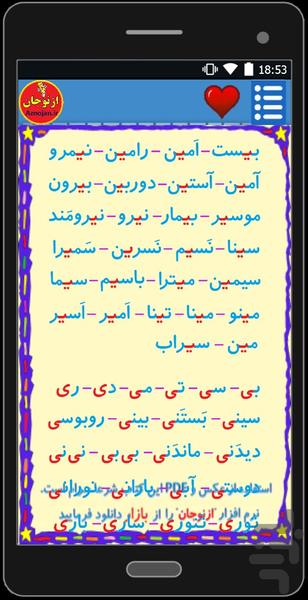 18:53
ازنوجان
Aznojan.ir
بیست – اَمین – رامین – نیمرو
آمین – آستین – دوربین – بیرون
موسیر – بیمار – نیرو – نیرومَند
سینا – نَسیم – نَسرین – سَمیرا
سیمین – میترا – باسیم – سیما
مینو – مینا – تینا – اَمیر – اَسیر
مین – سیراب
بی – سی – تی – می – دی – ری
سینی – بَستَنی – بینی – روبوسی
دیدَنی – ماندَنی – بی‌بی – نی‌نی
دوستی – آبی – بارانی – نورانی
نرم افزار "ازنوجان" را از بازار دانلود فرمایید
توری – تَنوری – ساری – تاری